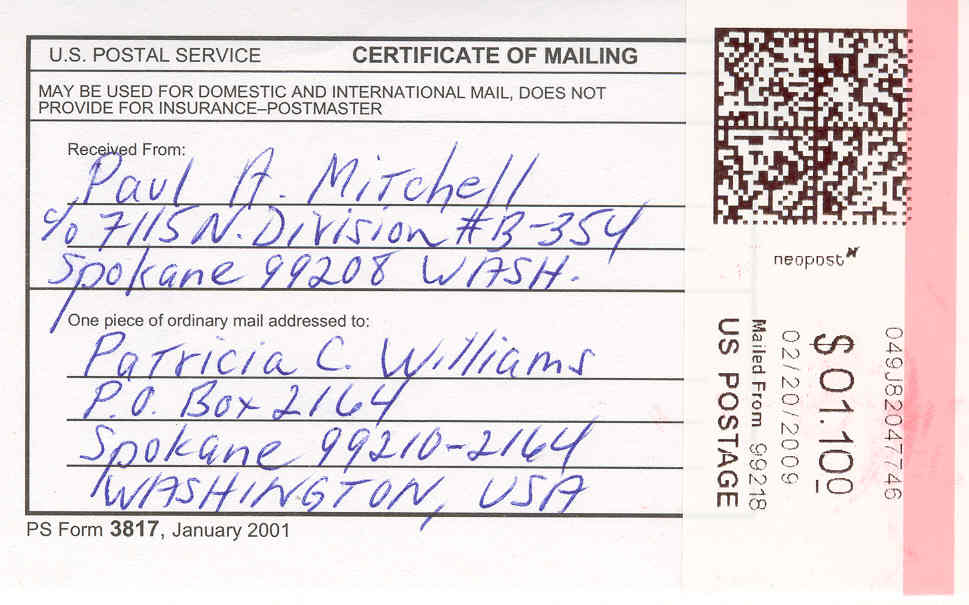 U.S. POSTAL SERVICE CERTIFICATE OF MAILING
MAY BE USED FOR DOMESTIC AND INTERNATIONAL MAIL, DOES NOT
PROVIDE FOR INSURANCE–POSTMASTER
Received From:
Paul A. Mitchell
c/o 7115 N. Division #B-354
Spokane 99208 WASH.
One piece of ordinary mail addressed to:
Patricia C. Williams
P.O. Box 2164
Spokane 99210-2164
WASHINGTON, USA
PS Form 3817, January 2001
neopost
049J82047746
$01.100
02/20/2009
Mailed From 99218
US POSTAGE